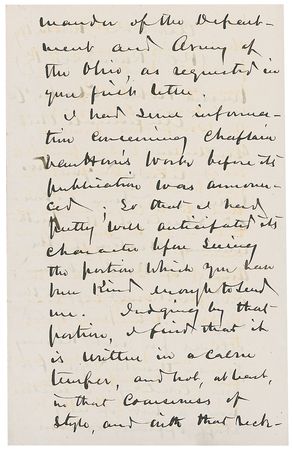 mander of the Depart-
ment and Army of
the Ohio, as requested in
your first letter.
I had some informa-
tion concerning Chaplain
VanHorne's Work before its
publication was announ-
ced; So that I had
pretty well anticipated its
character before seeing
the portion which you have
been Kind enough to send
me. Judging by that
portion, I find that it
is written in a calm
temper, and not, at least,
in that Coarseness of
Style, and with that reck-